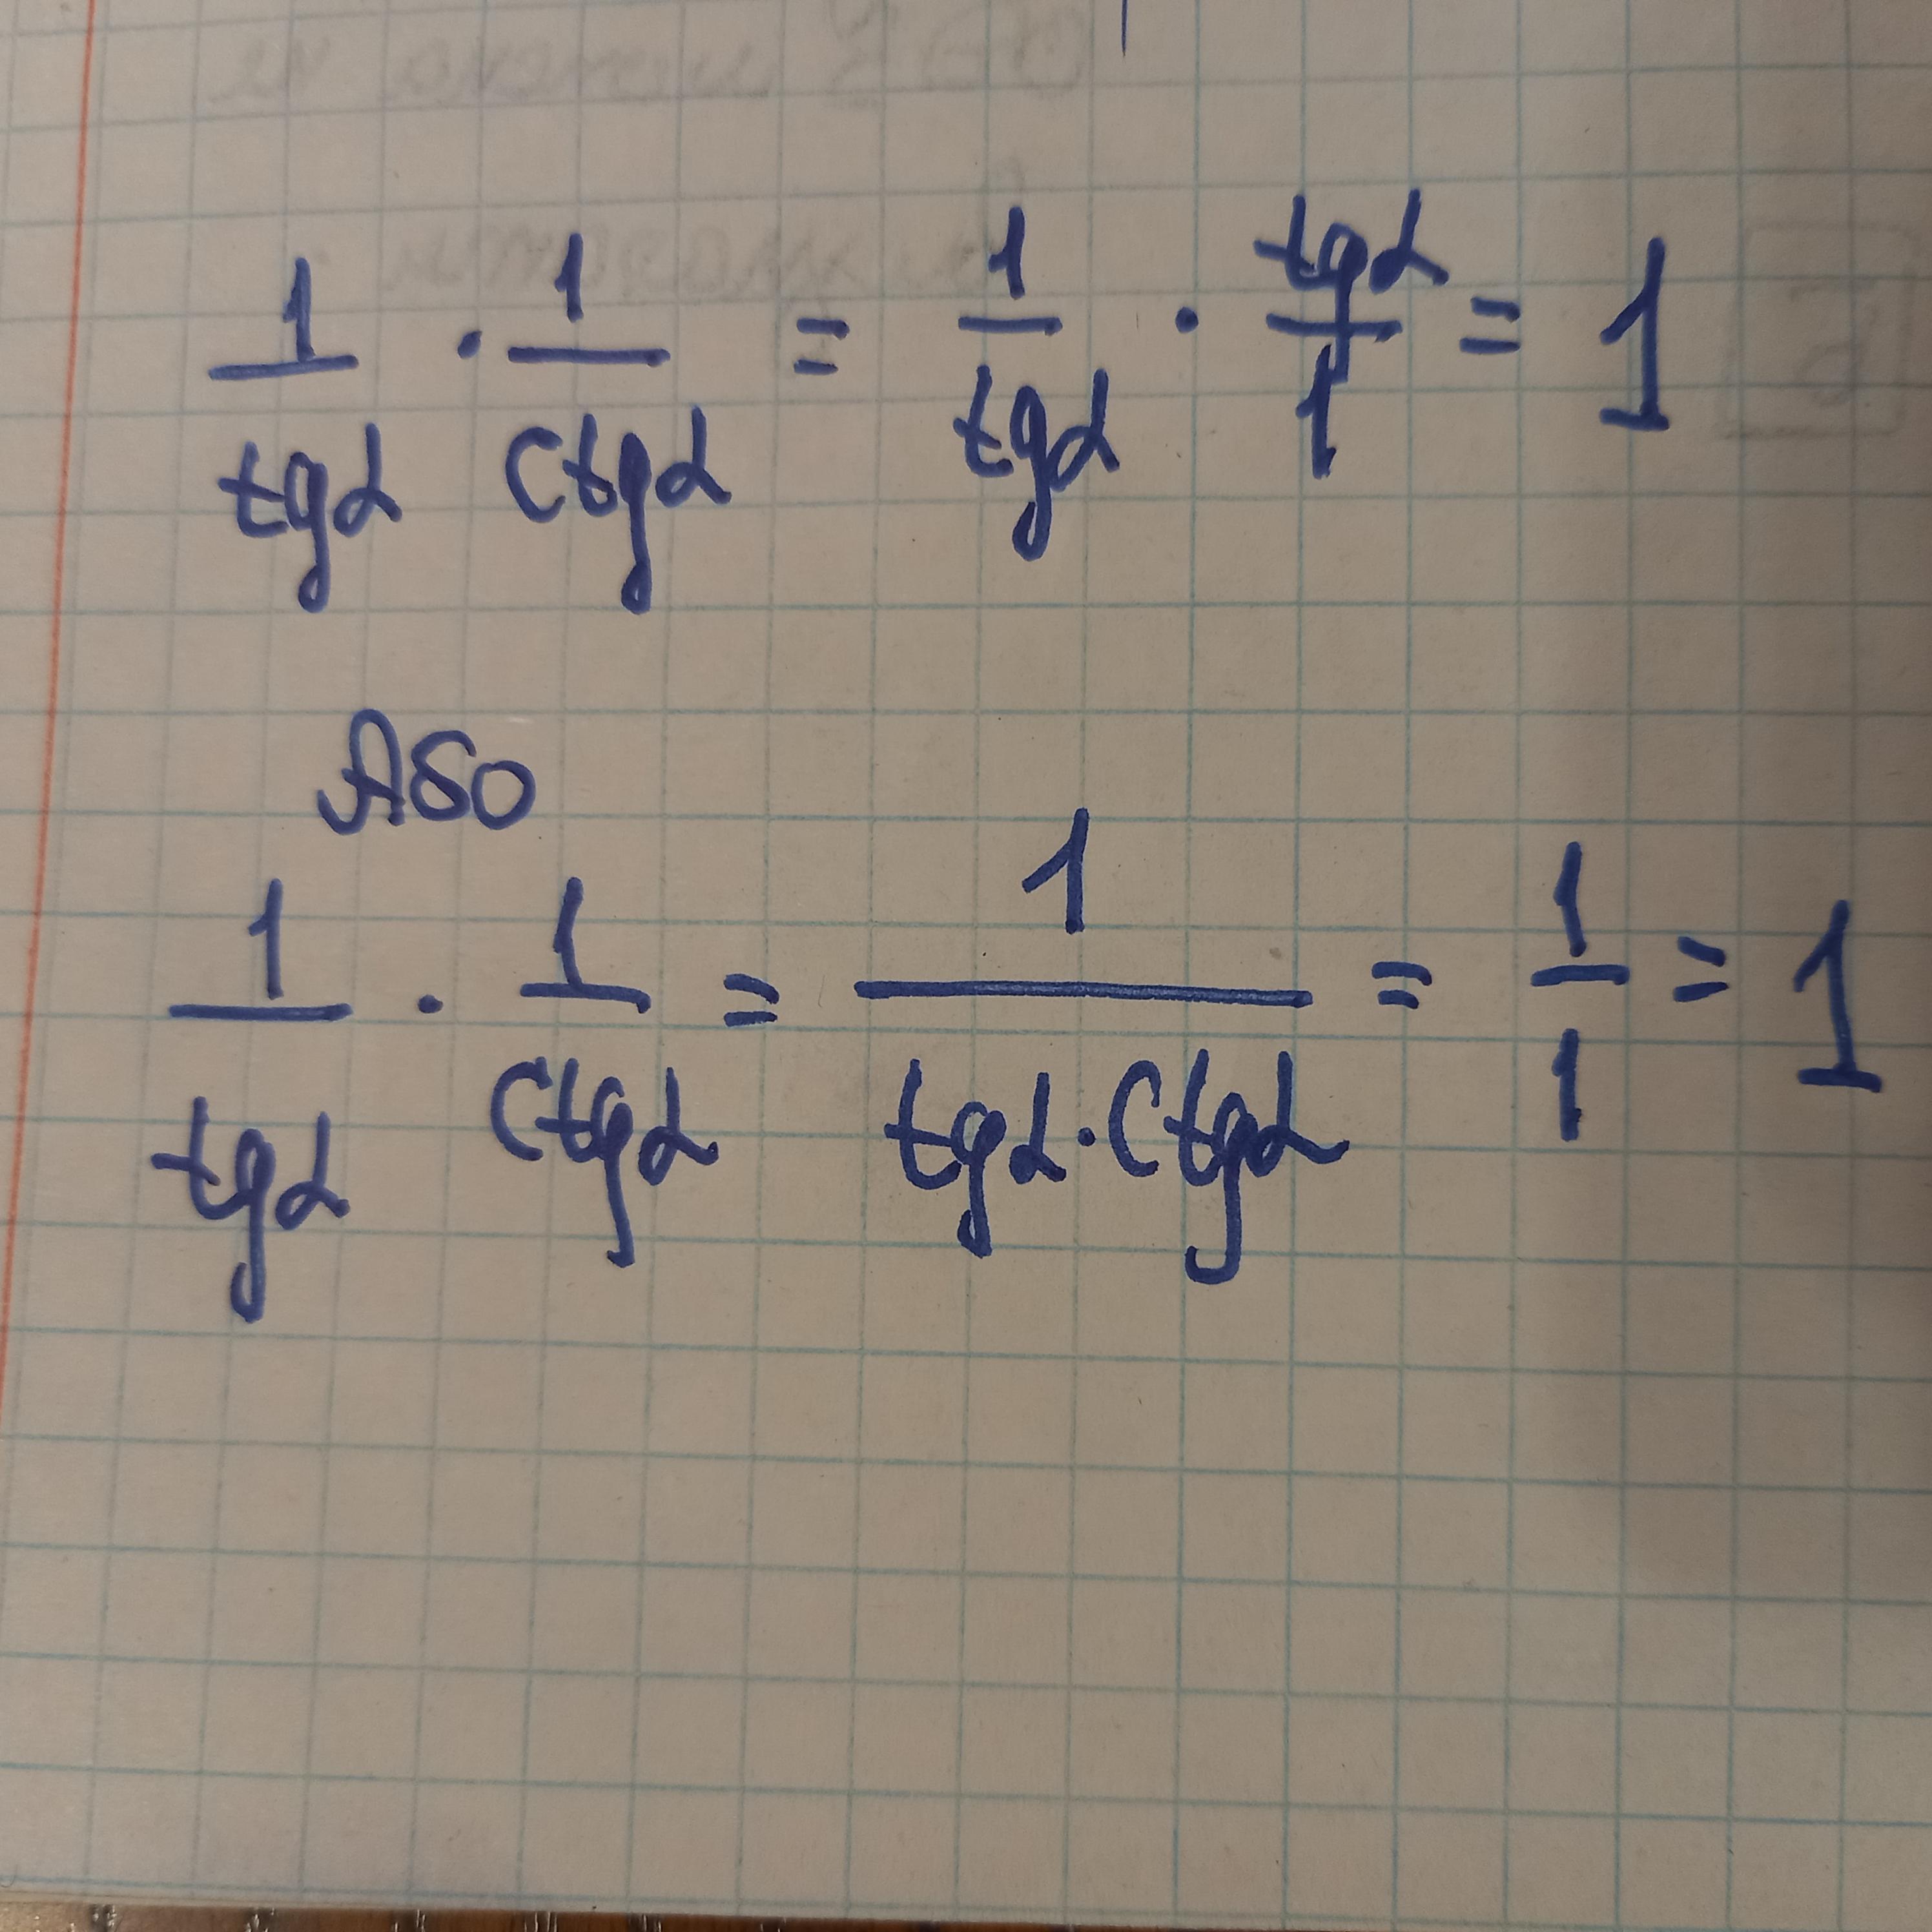 1/tgα · 1/ctgα = 1/tgα · tgα/1 = 1
Або
1/tgα · 1/ctgα = 1/(tgα·ctgα) = 1/1 = 1